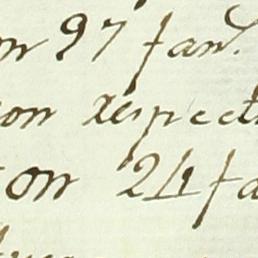 on 97 fam.
on respect
on 24 fa